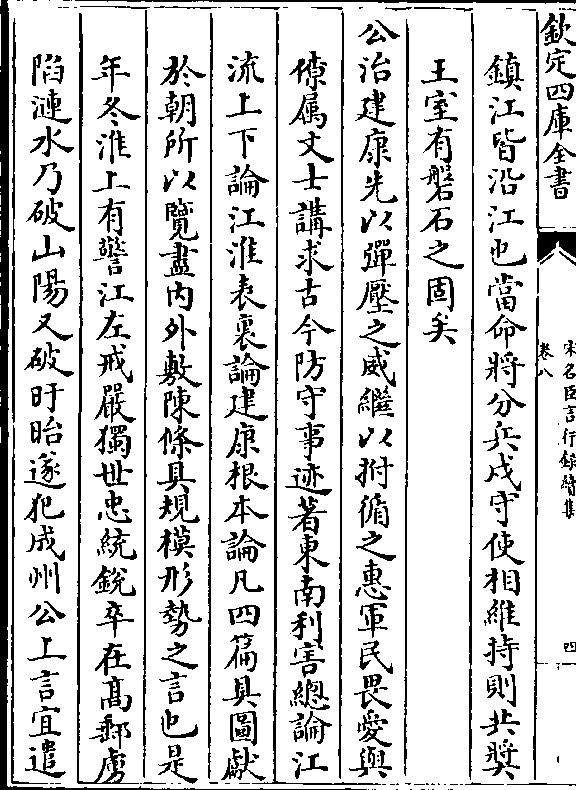 欽定四庫全書
宋名臣言行錄續集
卷八
四
鎮江皆沿江也當命將分兵戍守使相維持則共奬
王室有磐石之固矣
公治建康先以彈壓之威繼以拊循之惠軍民畏愛與
僚属文士講求古今防守事迹著東南利害總論江
流上下論江淮表裏論建康根本論凡四篇具圖獻
於朝所以覽盡内外敷陳條具規模形勢之言也是
年冬淮上有警江左戒嚴獨世忠統銳卒在髙郵虜
陷漣水乃破山陽又破盱眙遂犯成州公上言宜遣